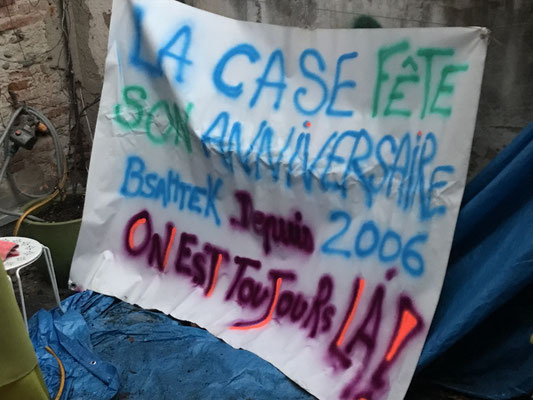 LA CASE FÊTE
SON ANNIVERSAIRE
BSAHTEK Depuis 2006
ON EST TOUJOURS LÀ!